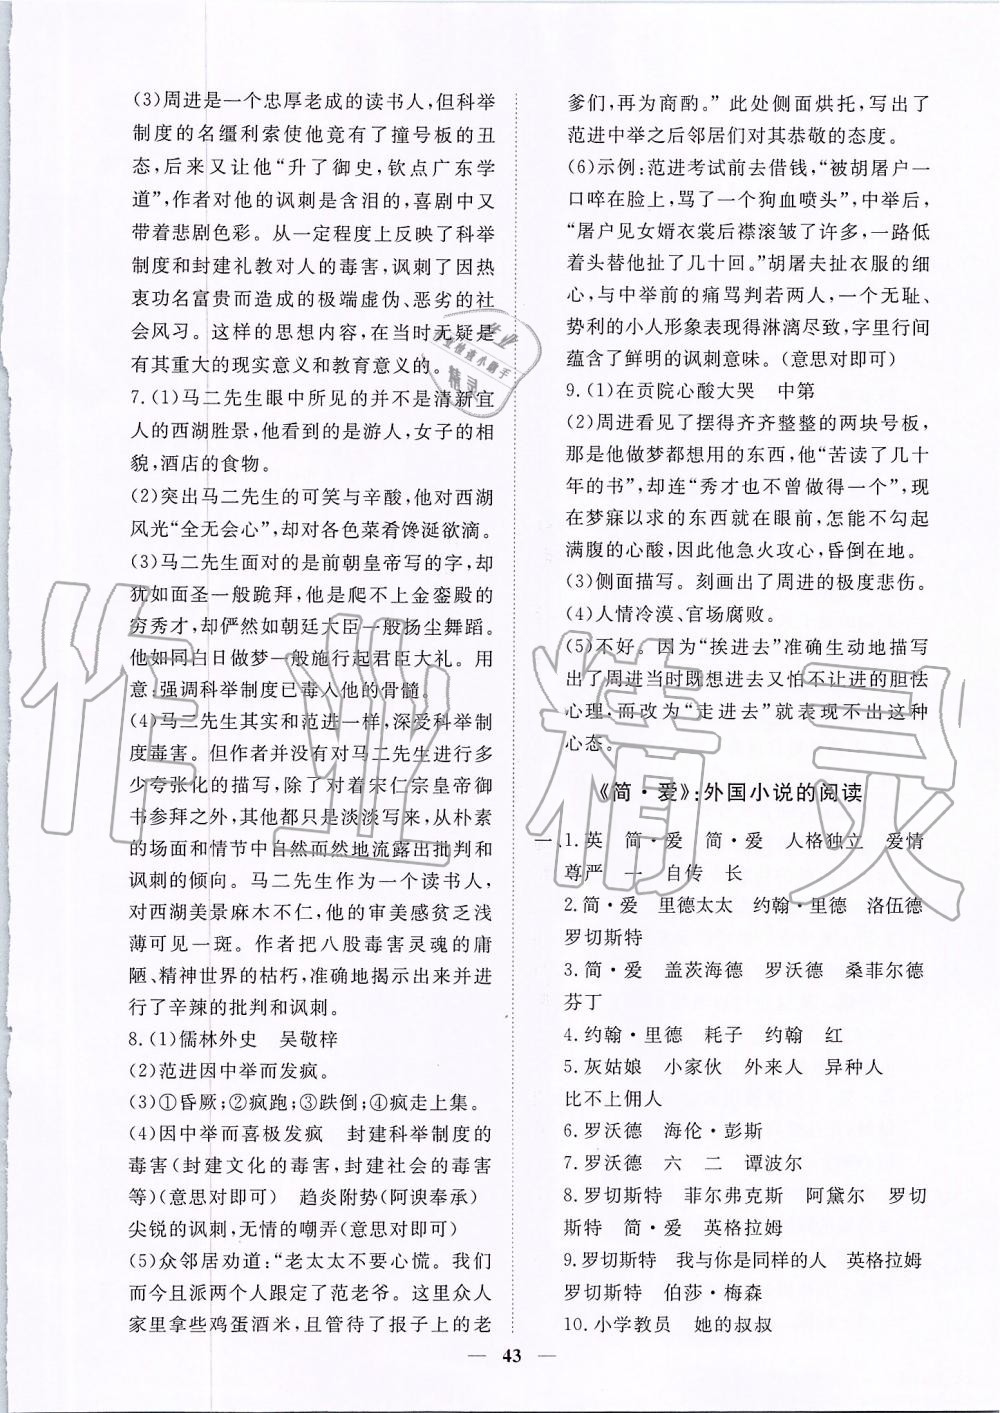 (3)周进是一个忠厚老成的读书人,但科举
制度的名缰利索使他竟有了撞号板的丑
态,后来又让他“升了御史,钦点广东学
道”,作者对他的讽刺是含泪的,喜剧中又
带着悲剧色彩。从一定程度上反映了科举
制度和封建礼教对人的毒害,讽刺了因热
衷功名富贵而造成的极端虚伪、恶劣的社
会风习。这样的思想内容,在当时无疑是
有其重大的现实意义和教育意义的。
7.(1)马二先生眼中所见的并不是清新宜
人的西湖胜景,他看到的是游人,女子的相
貌,酒店的食物。
(2)突出马二先生的可笑与辛酸,他对西湖
风光“全无会心”,却对各色菜肴馋涎欲滴。
(3)马二先生面对的是前朝皇帝写的字,却
犹如面圣一般跪拜,他是爬不上金銮殿的
穷秀才,却俨然如朝廷大臣一般扬尘舞蹈。
他如同白日做梦一般施行起君臣大礼。用
意:强调科举制度已毒入他的骨髓。
(4)马二先生其实和范进一样,深受科举制
度毒害。但作者并没有对马二先生进行多
少夸张化的描写,除了对着宋仁宗皇帝御
书参拜之外,其他都只是淡淡写来,从朴素
的场面和情节中自然而然地流露出批判和
讽刺的倾向。马二先生作为一个读书人,
对西湖美景麻木不仁,他的审美感贫乏浅
薄可见一斑。作者把八股毒害灵魂的庸
陋、精神世界的枯朽,准确地揭示出来并进
行了辛辣的批判和讽刺。
8.(1)儒林外史 吴敬梓
(2)范进因中举而发疯。
(3)①昏厥;②疯跑;③跌倒;④疯走上集。
(4)因中举而喜极发疯 封建科举制度的
毒害(封建文化的毒害,封建社会的毒害
等)(意思对即可) 趋炎附势(阿谀奉承)
尖锐的讽刺,无情的嘲弄(意思对即可)
(5)众邻居劝道:“老太太不要心慌。我们
而今且派两个人跟定了范老爷。这里众人
家里拿些鸡蛋酒米,且管待了报子上的老
爹们,再为商酌。”此处侧面烘托,写出了
范进中举之后邻居们对其恭敬的态度。
(6)示例:范进考试前去借钱,“被胡屠户一
口啐在脸上,骂了一个狗血喷头”,中举后,
“屠户见女婿衣裳后襟滚皱了许多,一路低
着头替他扯了几十回。”胡屠夫扯衣服的细
心,与中举前的痛骂判若两人,一个无耻、
势利的小人形象表现得淋漓尽致,字里行间
蕴含了鲜明的讽刺意味。(意思对即可)
9.(1)在贡院心酸大哭 中第
(2)周进看见了摆得齐齐整整的两块号板,
那是他做梦都想用的东西,他“苦读了几十
年的书”,却连“秀才也不曾做得一个”,现
在梦寐以求的东西就在眼前,怎能不勾起
满腹的心酸,因此他急火攻心,昏倒在地。
(3)侧面描写。刻画出了周进的极度悲伤。
(4)人情冷漠、官场腐败。
(5)不好。因为“挨进去”准确生动地描写
出了周进当时既想进去又怕不让进的胆怯
心理,而改为“走进去”就表现不出这种
心态。
《简·爱》:外国小说的阅读
一、1.英 简·爱 简·爱 人格独立 爱情
尊严 一 自传 长
2.简·爱 里德太太 约翰·里德 洛伍德
罗切斯特
3.简·爱 盖茨海德 罗沃德 桑菲尔德
芬丁
4.约翰·里德 耗子 约翰 红
5.灰姑娘 小家伙 外来人 异种人
比不上佣人
6.罗沃德 海伦·彭斯
7.罗沃德 六 二 谭波尔
8.罗切斯特 菲尔弗克斯 阿黛尔 罗切
斯特 简·爱 英格拉姆
9.罗切斯特 我与你是同样的人 英格拉姆
罗切斯特 伯莎·梅森
10.小学教员 她的叔叔
— 43 —
作业精灵